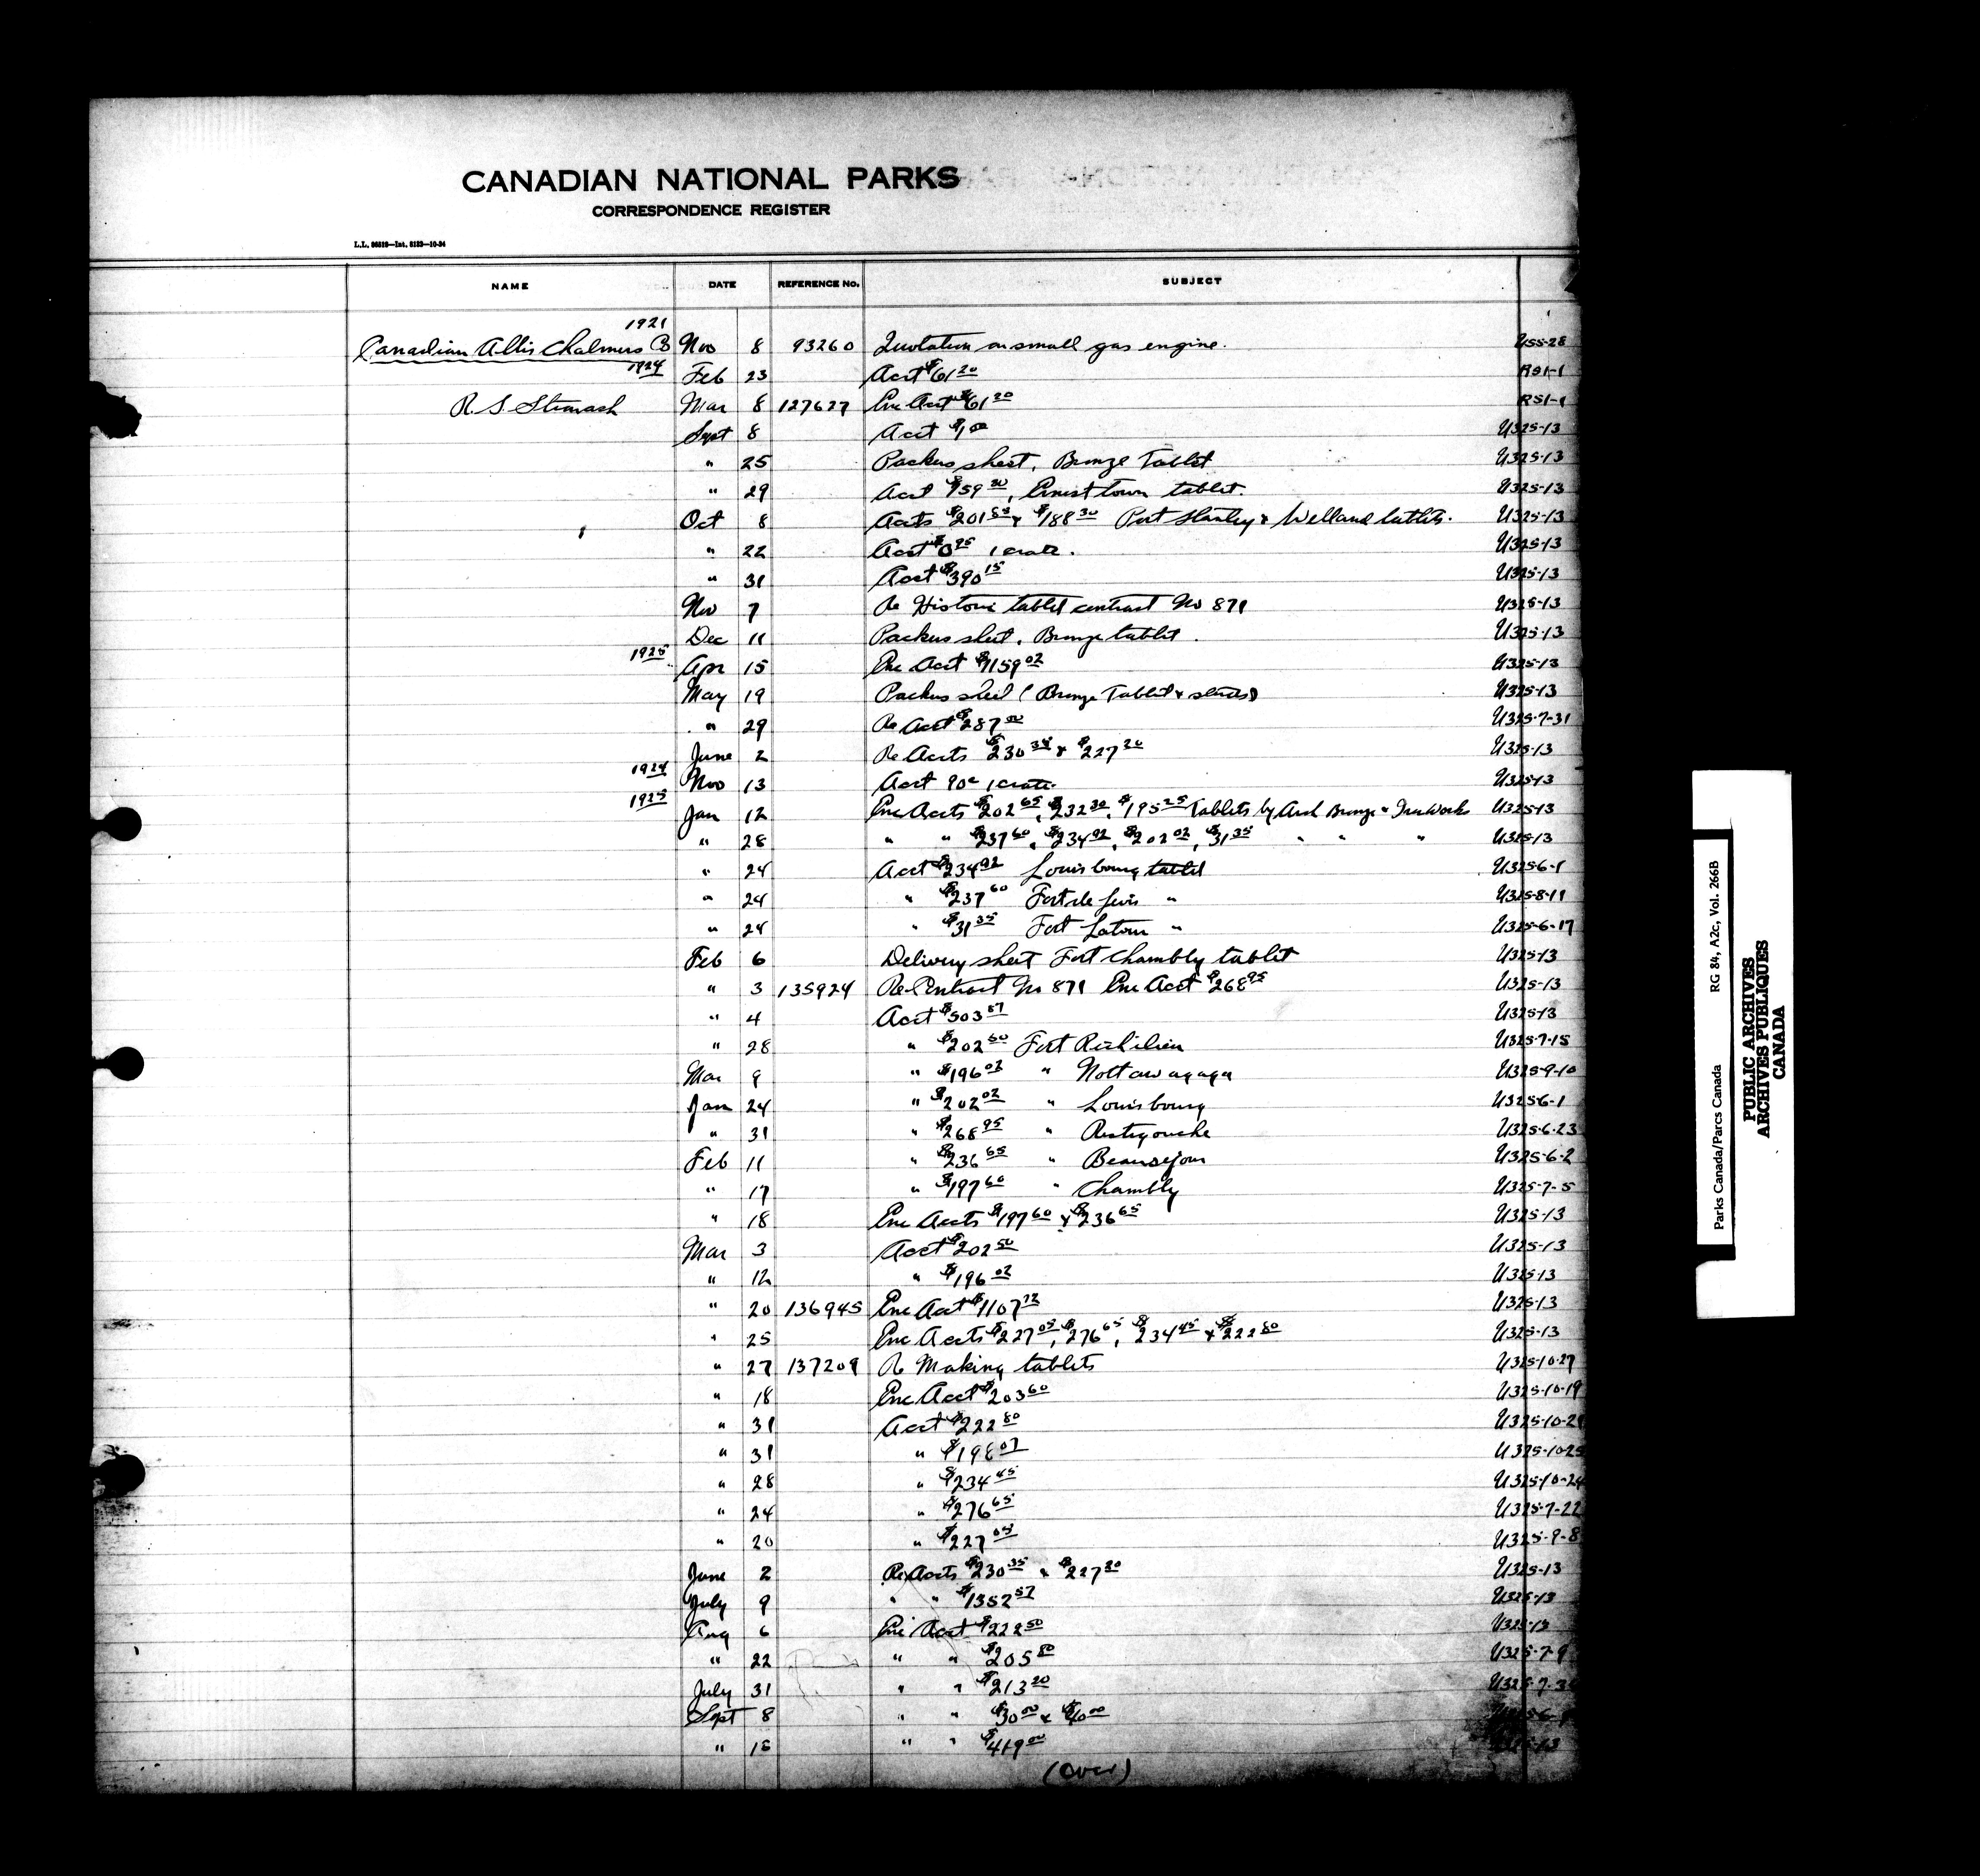 CANADIAN NATIONAL PARKS
CORRESPONDENCE REGISTER
NAME DATE REFERENCE No. SUBJECT
1921
Canadian Allis Chalmers Co Nov 8 93260 Quotation on small gas engine. U55-28
1924 Feb 23 Acct $61 20 RS1-1
Mar 8 127627 Enc Acct $61 20 RS1-1
Sept 8 Acct $1 00 U325-13
" 25 Packers sheet, Bronze Tablet U325-13
" 29 Acct $159 30, Ernest town tablet. U325-13
Oct 8 Accts & $188 30 Port Stanley & Welland tablets. U325-13
" 22 Acct 1 crate. U325-13
" 31 Acct $390 15 U325-13
Nov 7 Re Historic tablet contract No 871 U325-13
Dec 11 Packers sheet, Bronze tablet. U325-13
1925 Apr 15 Enc Acct $1159 02 U325-13
May 19 Packers sheet (Bronze Tablet & ) U325-13
" 29 Re Acct $287 00 U325-7-31
June 2 Re Accts $230 35 & $227 20 U325-13
1924 Nov 13 Acct 90c 1 crate. U325-13
1925 Jan 12 Enc Accts $202 65, $232 30, $195 25 Tablets by Arch Bronze & Iron Works U325-13
" 28 " " $237 60, $234 92, $202 02, $31 35 " " " U325-13
" 24 Acct $234 92 Louisbourg tablet U325-6-1
" 24 " $237 60 Fort de Levis " U325-8-11
" 24 " $31 35 Fort Latour " U325-6-17
Feb 6 Delivery sheet Fort Chambly tablet U325-13
" 3 135924 Re Contract No 871 Enc Acct $268 95 U325-13
" 4 Acct $503 87 U325-13
" 28 " $202 50 Fort Richilieu U325-7-15
Mar 9 " $196 02 " Nottawagaga U325-9-10
Jan 24 " $202 02 " Louisbourg U325-6-1
" 31 " $268 95 " Restigouche U325-6-23
Feb 11 " $236 65 " Beausejour U325-6-2
" 17 " $197 60 " Chambly U325-7-5
" 18 Enc Accts $197 60 & $236 65 U325-13
Mar 3 Acct $202 50 U325-13
" 12 " $196 02 U325-13
" 20 136945 Enc Acct $1107 72 U325-13
" 25 Enc Accts $227 05, $276 65, $234 45 & $222 80 U325-13
" 27 137209 Re Making tablets U325-10-27
" 18 Enc Acct $203 60 U325-10-19
" 31 Acct $222 80 U325-10-2
" 31 " $198 07 U325-10-25
" 28 " $234 45 U325-10-24
" 24 " $276 65 U325-7-22
" 20 " $227 05 U325-9-8
June 2 Re Accts $230 35 & $227 20 U325-13
July 9 " " $1352 57 U325-13
Aug 6 Enc Acct $222 50 U325-13
" 22 " " $205 80 U325-7-9
July 31 " " $213 20 U325-7-3
Sept 8 " " $30 00 & $40 00
" 15 " " $419 00
(Over)
Parks Canada/Parcs Canada RG 84, A2c, Vol. 266B
PUBLIC ARCHIVES
ARCHIVES PUBLIQUES
CANADA